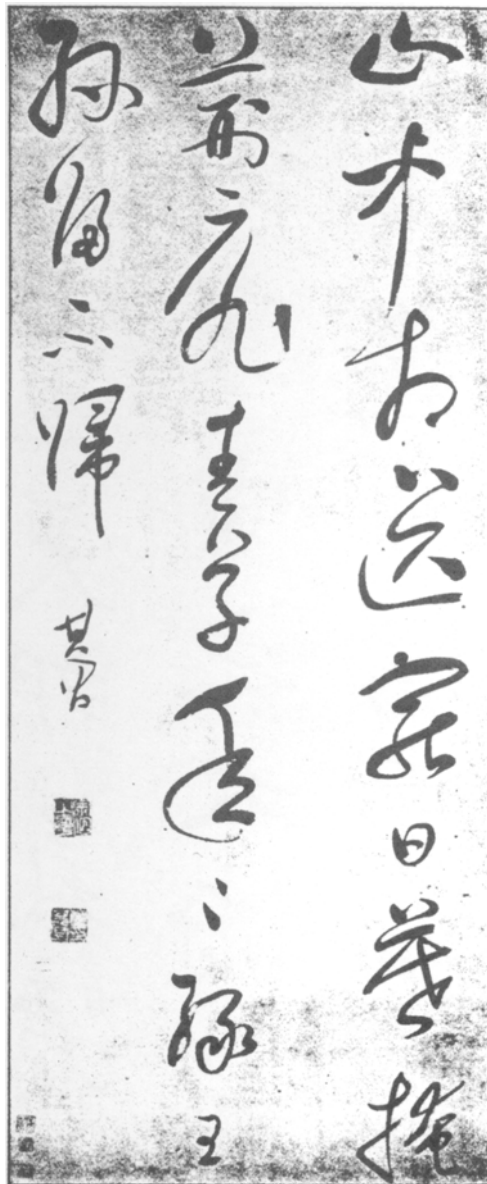 山中相送罷日暮掩
荊扉春草年々綠王
孫歸不歸
其昌